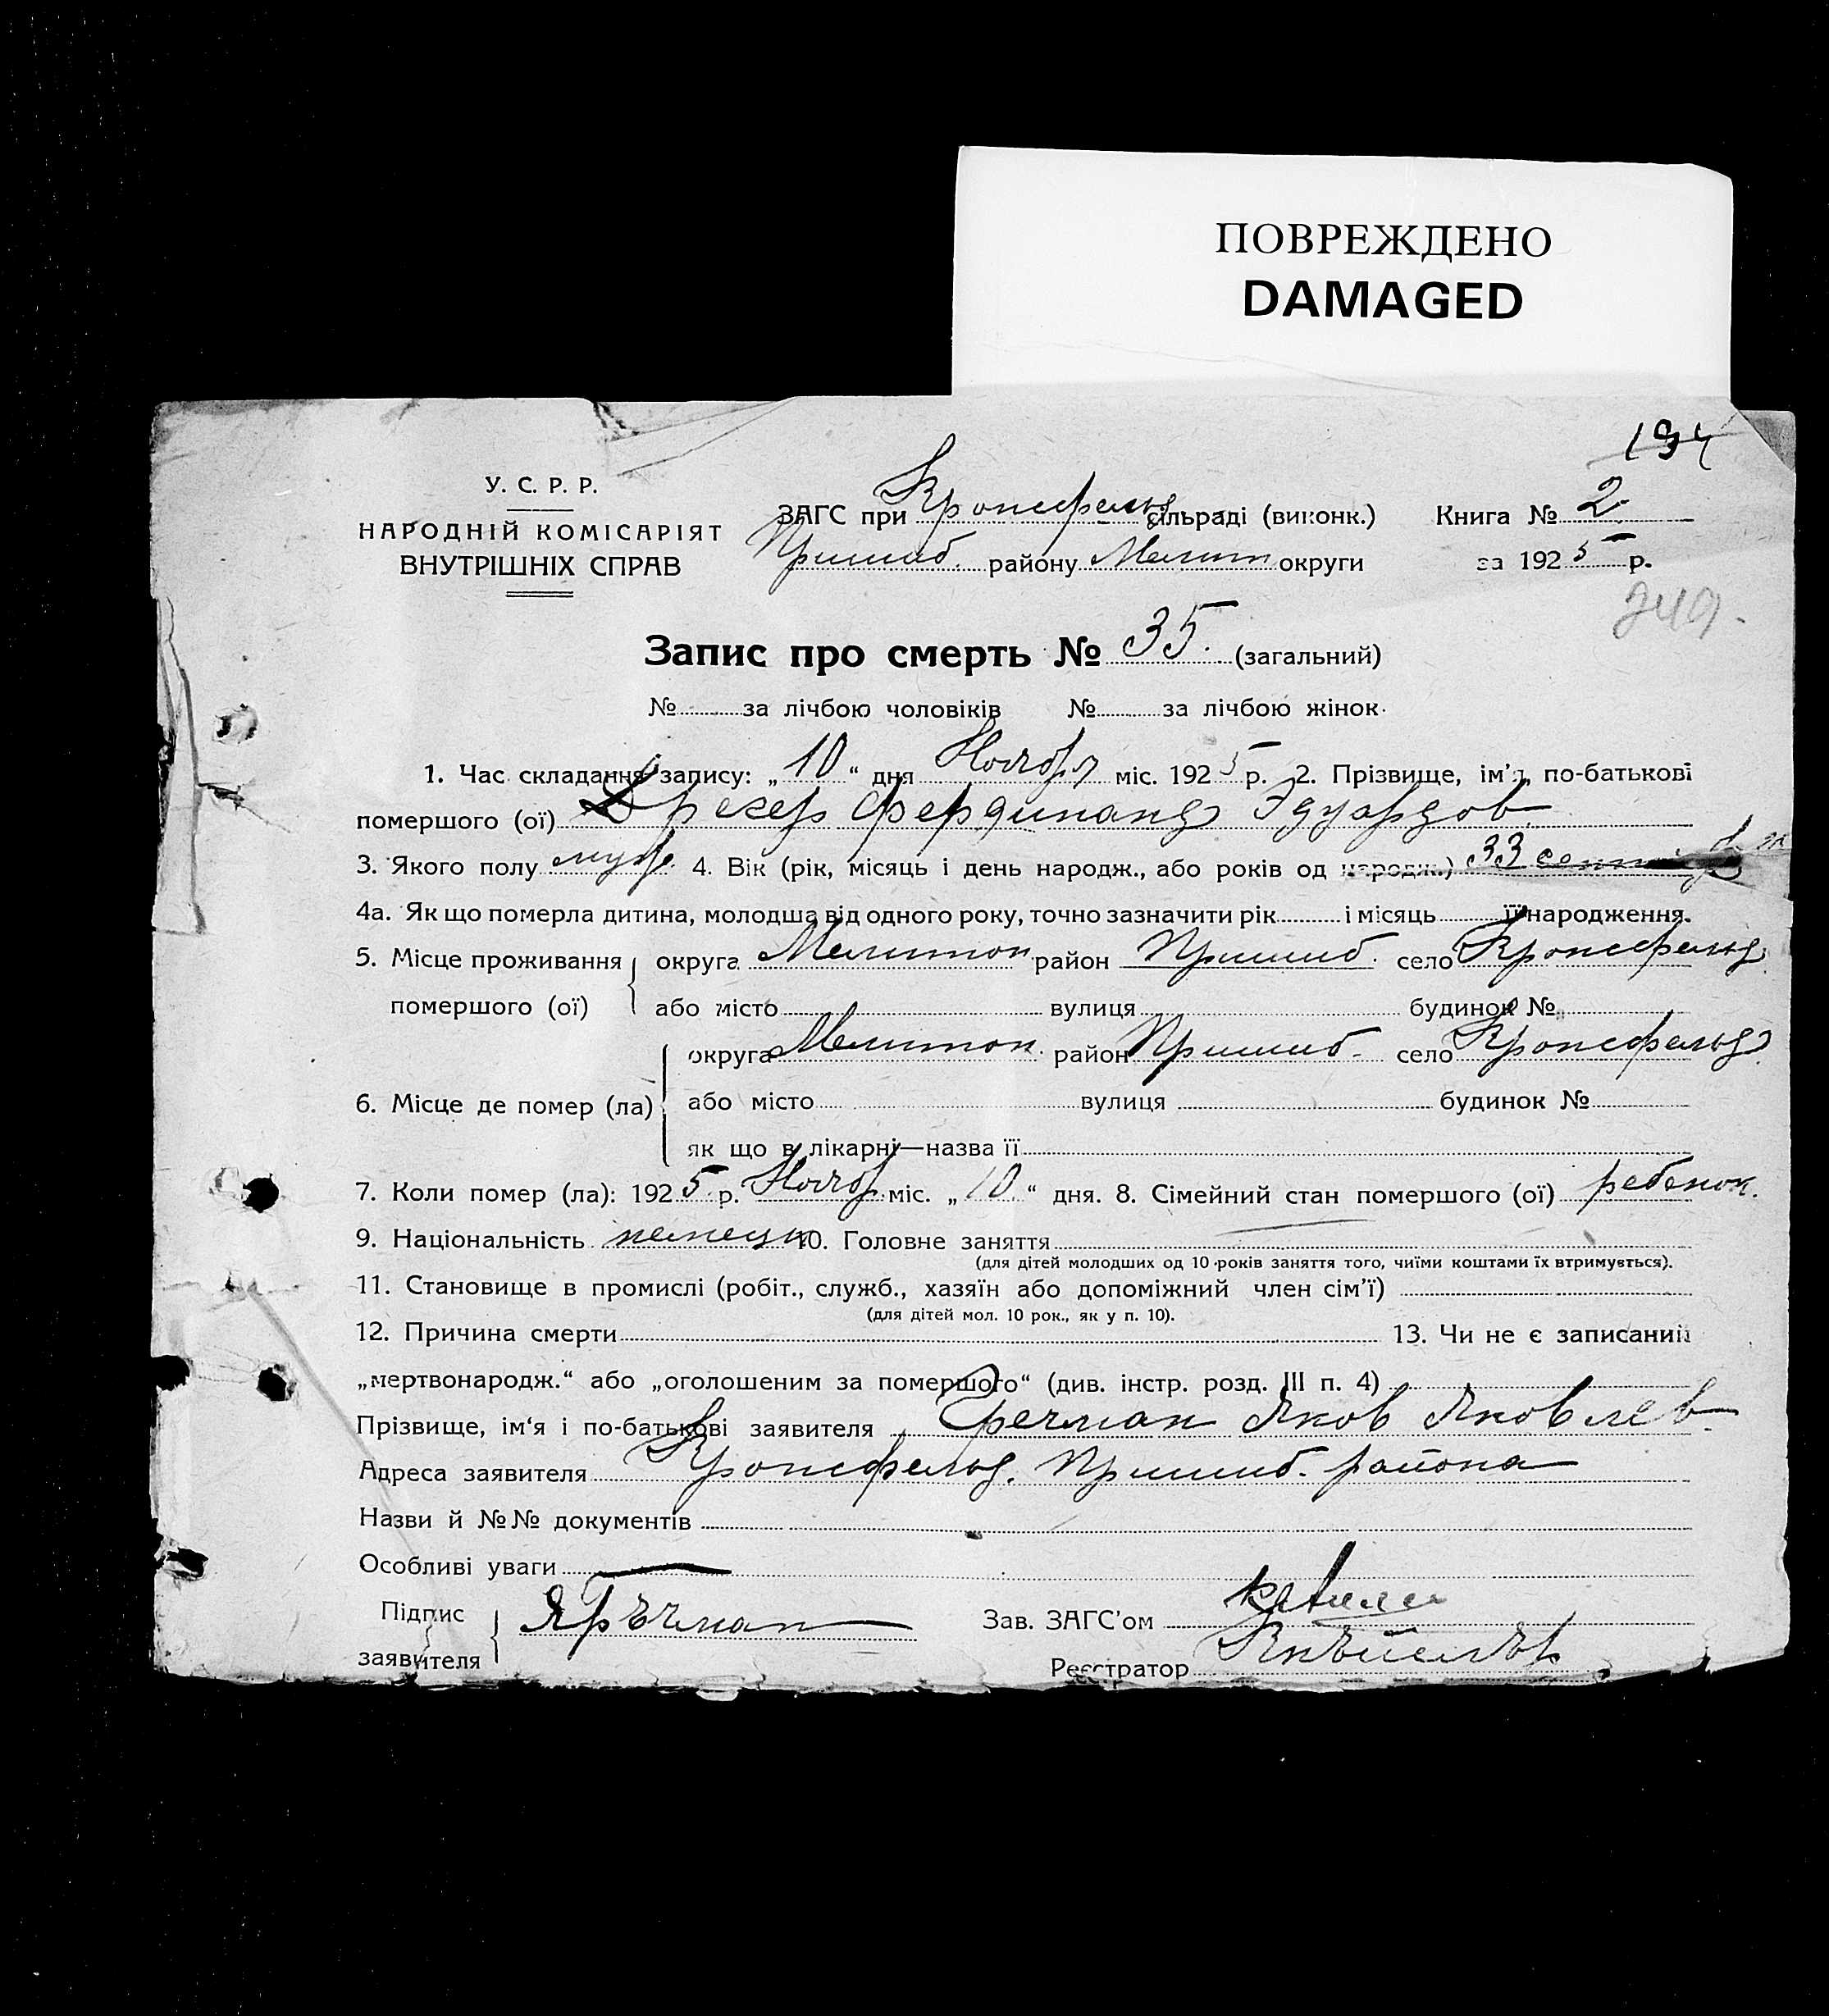 ПОВРЕЖДЕНО
DAMAGED
194
У. С. Р. Р.
НАРОДНІЙ КОМІСАРІЯТ
ВНУТРІШНІХ СПРАВ
ЗАГС при Кронсфельд сільраді (виконк.) Книга № 2
Пришиб. району Мелит округи за 1925 р.
249.
Запис про смерть № 35. (загальний)
№ за лічбою чоловіків № за лічбою жінок.
1. Час складання запису: „10“ дня Ноября міс. 1925 р. 2. Прізвище, ім'я, по-батькові
помершого (ої) Фердинанд Эдуардов
3. Якого полу муж. 4. Вік (рік, місяць і день народж., або років од народж.) 33
4а. Як що померла дитина, молодша від одного року, точно зазначити рік і місяць її народження.
5. Місце проживання округа Мелитоп район Пришиб. село Кронсфельд
помершого (ої) або місто вулиця будинок №
округа Мелитоп. район Пришиб. село Кронсфельд
6. Місце де помер (ла) або місто вулиця будинок №
як що в лікарні—назва її
7. Коли помер (ла): 1925 р. Нояб. міс. „10“ дня. 8. Сімейний стан помершого (ої) ребенок.
9. Національність немецк 10. Головне заняття
(для дітей молодших од 10 років заняття того, чиїми коштами їх втримується).
11. Становище в промислі (робіт., служб., хазяїн або допоміжний член сім'ї)
(для дітей мол. 10 рок., як у п. 10).
12. Причина смерти 13. Чи не є записаний
„мертвонародж.“ або „оголошеним за помершого“ (див. інстр. розд. III п. 4)
Прізвище, ім'я і по-батькові заявителя Яков Яковлев
Адреса заявителя Кронсфельд. Пришиб. района
Назви й №№ документів
Особливі уваги
Підпис
Зав. ЗАГС'ом
заявителя
Реєстратор